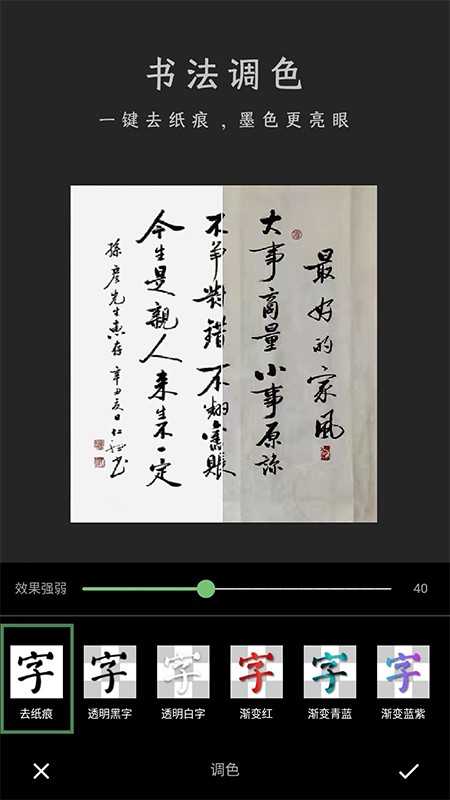 书法调色
一键去纸痕，墨色更亮眼
最好的家风
大事商量小事原谅
不争对错不翻旧账
今生是親人来生不一定
孫彦先生惠存 辛丑友日仁
效果强弱
40
字 字 字 字 字 字
去纸痕 透明黑字 透明白字 渐变红 渐变青蓝 渐变蓝紫
调色